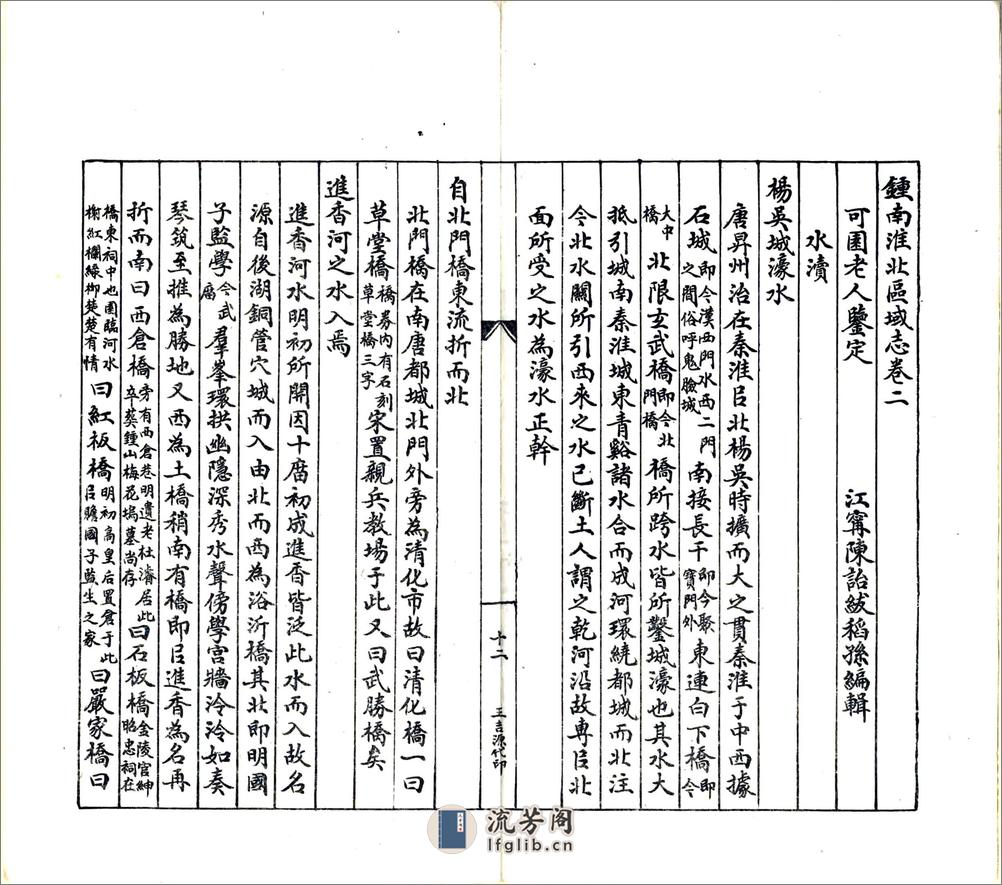 鍾南淮北區域志卷二
可園老人鑒定　江寧陳詒紱稻孫編輯
水瀆
楊吳城濠水
唐昇州治在秦淮㠯北楊吳時擴而大之貫秦淮于中西據
石城即今漢西門水西二門之間俗呼鬼臉城南接長干即今聚寶門外東連白下橋即今
大中橋北限玄武橋即今北門橋橋所跨水皆所鑿城濠也其水大
抵引城南秦淮城東青谿諸水合而成河環繞都城而北注
今北水關所引西來之水已斷土人謂之乾河沿故專㠯北
面所受之水為濠水正幹
自北門橋東流折而北
北門橋在南唐都城北門外旁為清化市故曰清化橋一曰
草堂橋橋券內有石刻草堂橋三字宋置親兵教場于此又曰武勝橋矣
進香河之水入焉
進香河水明初所開因十廟初成進香皆泛此水而入故名
源自後湖銅管穴城而入由北而西為浴沂橋其北即明國
子監學今武廟羣峯環拱幽隱深秀水聲傍學宮牆泠泠如奏
琴筑至推為勝地又西為土橋稍南有橋即㠯進香為名再
折而南曰西倉橋旁有西倉巷明遺老杜濬居此卒葬鍾山梅花塢墓尚存曰石板橋金陵官紳昭忠祠在
橋東祠中也園臨河水榭紅欄綠柳楚楚有情曰紅板橋明初高皇后置倉于此㠯贍國子監生之家曰嚴家橋曰
十二
王吉源代印
流芳阁
lfglib.cn